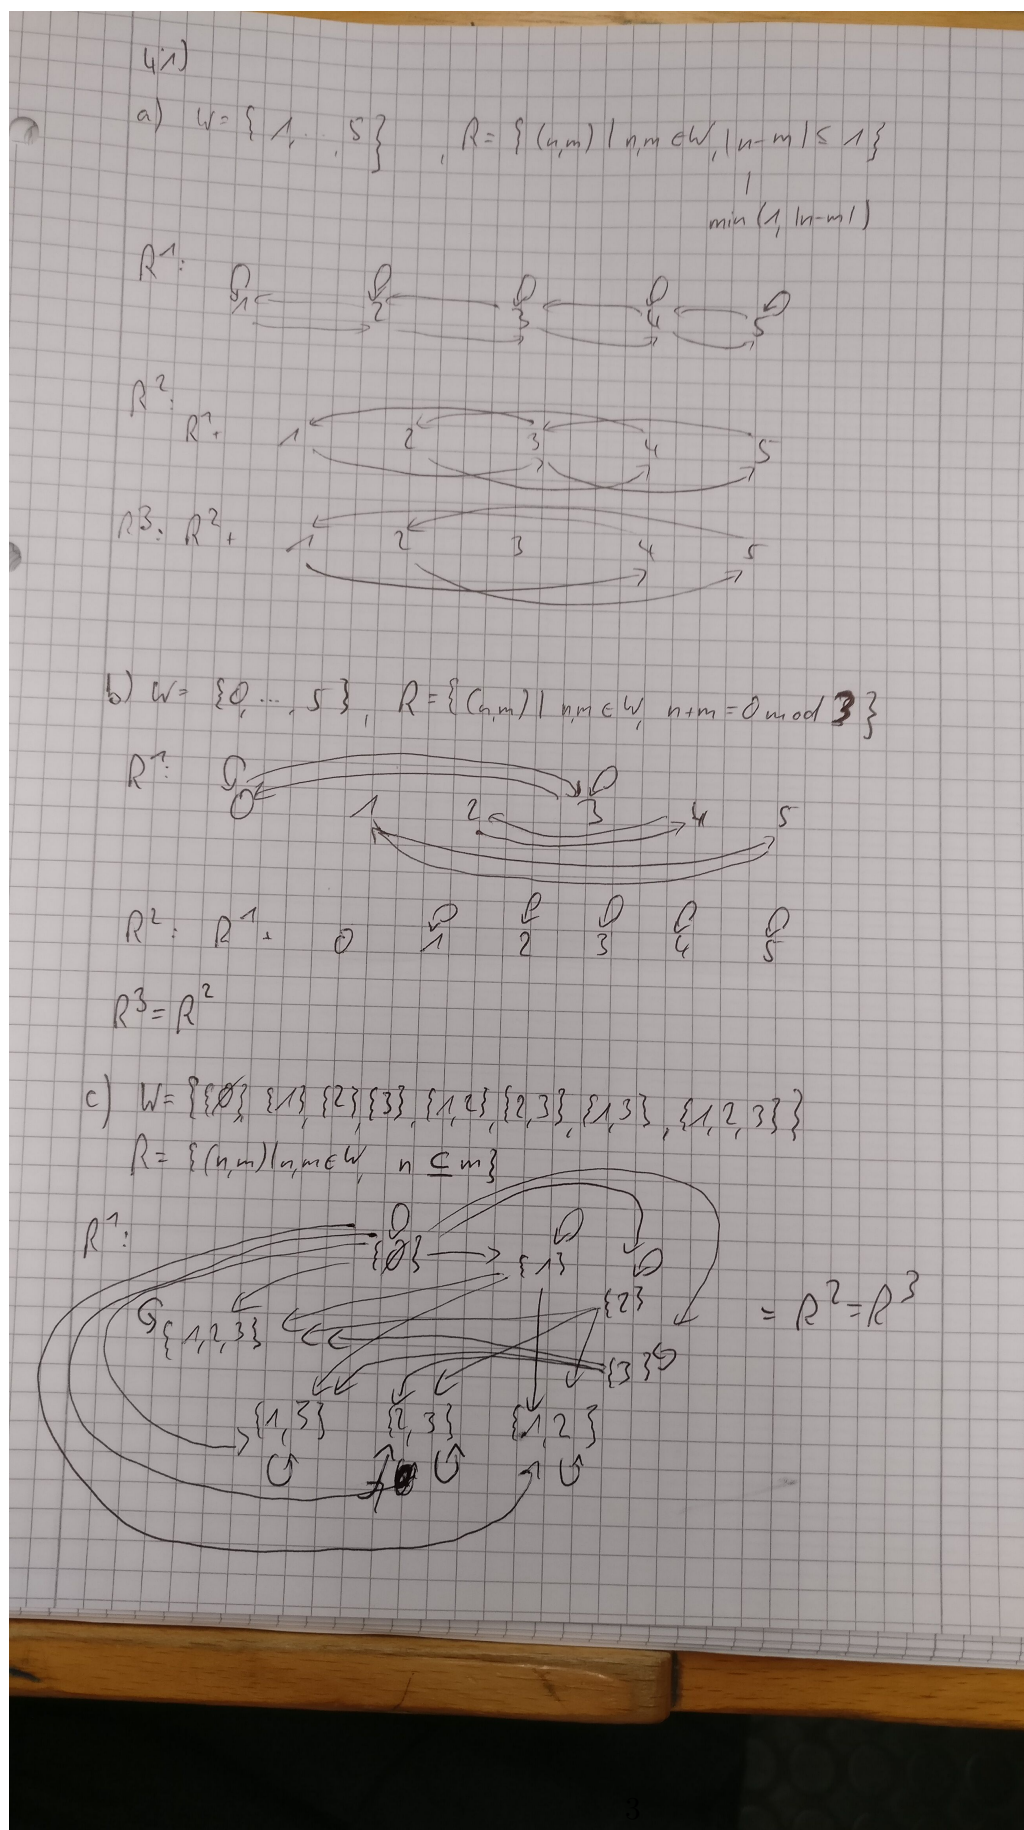 4.1)
a) W = { 1, ..., 5 } , R = { (n,m) | n,m ∈ W, |n-m| ≤ 1 }
min (1, |n-m|)
R^1:
1 2 3 4 5
R^2:
R^1 + 1 2 3 4 5
R^3: R^2 + 1 2 3 4 5
b) W = {0, ..., 5 }, R = {(n,m) | n,m ∈ W, n+m = 0 mod 3 }
R^1:
0 1 2 3 4 5
R^2: R^1 + 0 1 2 3 4 5
R^3 = R^2
c) W = {{∅}, {1}, {2}, {3}, {1,2}, {2,3}, {1,3}, {1,2,3}}
R = {(n,m) | n,m ∈ W, n ⊆ m}
R^1:
{∅} {1}
{2}
{1,2,3} = R^2 = R^3
{3}
{1,3} {2,3} {1,2}
3